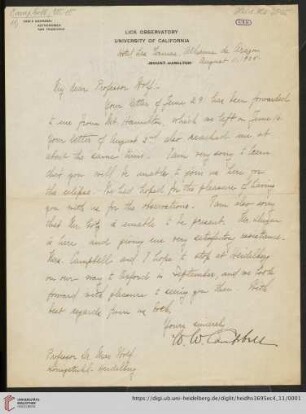 Campbell, W. W.
LICK OBSERVATORY
UNIVERSITY OF CALIFORNIA
MOUNT HAMILTON
Hotel Las Termas, Alhama de Aragon
August 11, 1905
My dear Professor Wolf:
Your letter of June 29 has been forwarded
to me from Mt. Hamilton which we left on June 10
Your letter of August 2nd also reached me at
about the same time. I am very sorry to learn
that you will be unable to join us here on
the eclipse. We had hoped for the pleasure of having
you with us for the observations. I am also sorry
that Mr. Götz is unable to be present.
is here and giving me very satisfactory assistance.
Mrs. Campbell and I hope to stop at Heidelberg
on our way to Oxford in September, and we look
forward with pleasure to seeing you then. With
best regards from us both
Yours sincerely,
W. W. Campbell
Professor Dr. Max Wolf
Königstuhl-Heidelberg
UNIVERSITÄTS
BIBLIOTHEK
HEIDELBERG
https://digi.ub.uni-heidelberg.de/diglit/heidhs3695ac4_11/0001